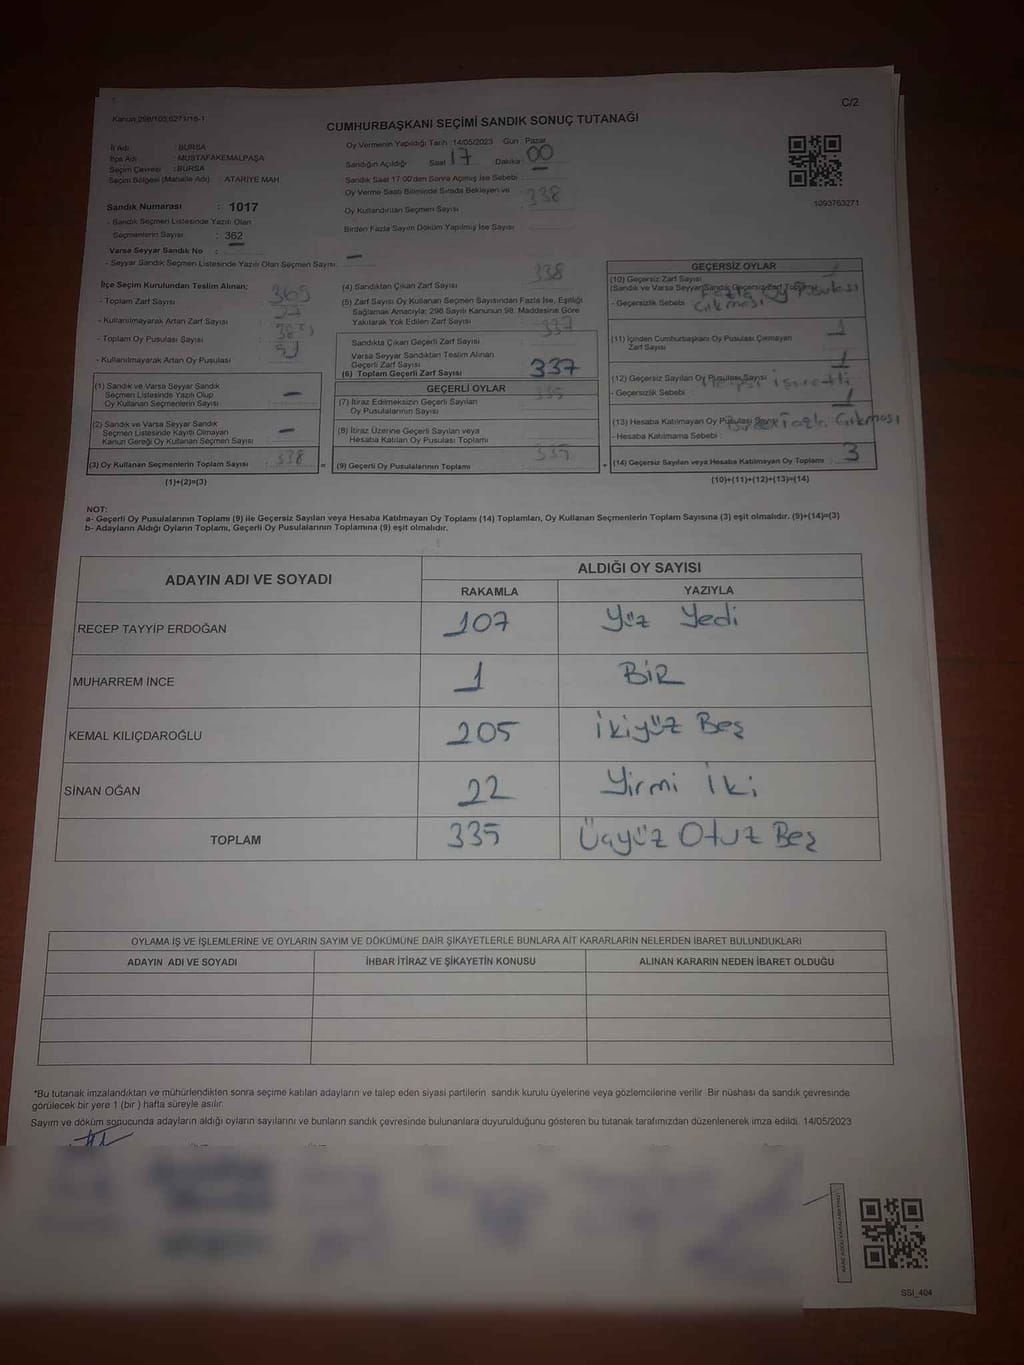 Kanun:298/105,6271/18-1
C/2
CUMHURBAŞKANI SEÇİMİ SANDIK SONUÇ TUTANAĞI
İl Adı : BURSA
İlçe Adı : MUSTAFAKEMALPAŞA
Seçim Çevresi : BURSA
Seçim Bölgesi (Mahalle Adı) : ATARİYE MAH.
Sandık Numarası : 1017
- Sandık Seçmen Listesinde Yazılı Olan
Seçmenlerin Sayısı : 362
Varsa Seyyar Sandık No :
- Seyyar Sandık Seçmen Listesinde Yazılı Olan Seçmen Sayısı: -
Oy Vermenin Yapıldığı Tarih :14/05/2023 Gün : Pazar
Sandığın Açıldığı Saat 17 Dakika 00
Sandık Saat 17.00'den Sonra Açılmış İse Sebebi :
Oy Verme Saati Bitiminde Sırada Bekleyen ve
Oy Kullandırılan Seçmen Sayısı
: 338
Birden Fazla Sayım Döküm Yapılmış İse Sayısı :
1093763271
İlçe Seçim Kurulundan Teslim Alınan;
- Toplam Zarf Sayısı : 365
- Kullanılmayarak Artan Zarf Sayısı : 27
- Toplam Oy Pusulası Sayısı :
- Kullanılmayarak Artan Oy Pusulası :
(1) Sandık ve Varsa Seyyar Sandık
Seçmen Listesinde Yazılı Olup
Oy Kullanan Seçmenlerin Sayısı : -
(2) Sandık ve Varsa Seyyar Sandık
Seçmen Listesinde Kayıtlı Olmayan
Kanun Gereği Oy Kullanan Seçmen Sayısı : -
(3) Oy Kullanan Seçmenlerin Toplam Sayısı : 338
(1)+(2)=(3)
(4) Sandıktan Çıkan Zarf Sayısı : 338
(5) Zarf Sayısı Oy Kullanan Seçmen Sayısından Fazla İse, Eşitliği
Sağlamak Amacıyla; 298 Sayılı Kanunun 98. Maddesine Göre
Yakılarak Yok Edilen Zarf Sayısı :
Sandıkta Çıkan Geçerli Zarf Sayısı : 337
Varsa Seyyar Sandıktan Teslim Alınan
Geçerli Zarf Sayısı :
(6) Toplam Geçerli Zarf Sayısı : 337
GEÇERLİ OYLAR
(7) İtiraz Edilmeksizin Geçerli Sayılan
Oy Pusulalarının Sayısı : 335
(8) İtiraz Üzerine Geçerli Sayılan veya
Hesaba Katılan Oy Pusulası Toplamı :
(9) Geçerli Oy Pusulalarının Toplamı : 335
GEÇERSİZ OYLAR
(10) Geçersiz Zarf Sayısı
(Sandık ve Varsa SeyyarSandık GeçersizZarf Toplamı) : 1
- Geçersizlik Sebebi : Fazla Oy Pusulası
Çıkması
(11) İçinden Cumhurbaşkanı Oy Pusulası Çıkmayan
Zarf Sayısı : 1
(12) Geçersiz Sayılan Oy Pusulası Sayısı : 1
- Geçersizlik Sebebi : işaretli
(13) Hesaba Katılmayan Oy Pusulası Sayısı : 1
- Hesaba Katılmama Sebebi : Çıkması
(14) Geçersiz Sayılan veya Hesaba Katılmayan Oy Toplamı : 3
(10)+(11)+(12)+(13)=(14)
NOT:
a- Geçerli Oy Pusulalarının Toplamı (9) ile Geçersiz Sayılan veya Hesaba Katılmayan Oy Toplamı (14) Toplamları, Oy Kullanan Seçmenlerin Toplam Sayısına (3) eşit olmalıdır. (9)+(14)=(3)
b- Adayların Aldığı Oyların Toplamı, Geçerli Oy Pusulalarının Toplamına (9) eşit olmalıdır.
ADAYIN ADI VE SOYADI
ALDIĞI OY SAYISI
RAKAMLA YAZIYLA
RECEP TAYYİP ERDOĞAN 107 Yüz Yedi
MUHARREM İNCE 1 BİR
KEMAL KILIÇDAROĞLU 205 İkiyüz Beş
SİNAN OĞAN 22 Yirmi İki
TOPLAM 335 Üçyüz Otuz Beş
OYLAMA İŞ VE İŞLEMLERİNE VE OYLARIN SAYIM VE DÖKÜMÜNE DAİR ŞİKAYETLERLE BUNLARA AİT KARARLARIN NELERDEN İBARET BULUNDUKLARI
ADAYIN ADI VE SOYADI İHBAR İTİRAZ VE ŞİKAYETİN KONUSU ALINAN KARARIN NEDEN İBARET OLDUĞU
*Bu tutanak imzalandıktan ve mühürlendikten sonra seçime katılan adayların ve talep eden siyasi partilerin sandık kurulu üyelerine veya gözlemcilerine verilir. Bir nüshası da sandık çevresinde
görülecek bir yere 1 (bir ) hafta süreyle asılır.
Sayım ve döküm sonucunda adayların aldığı oyların sayılarını ve bunların sandık çevresinde bulunanlara duyurulduğunu gösteren bu tutanak tarafımızdan düzenlenerek imza edildi. 14/05/2023
SSI_404